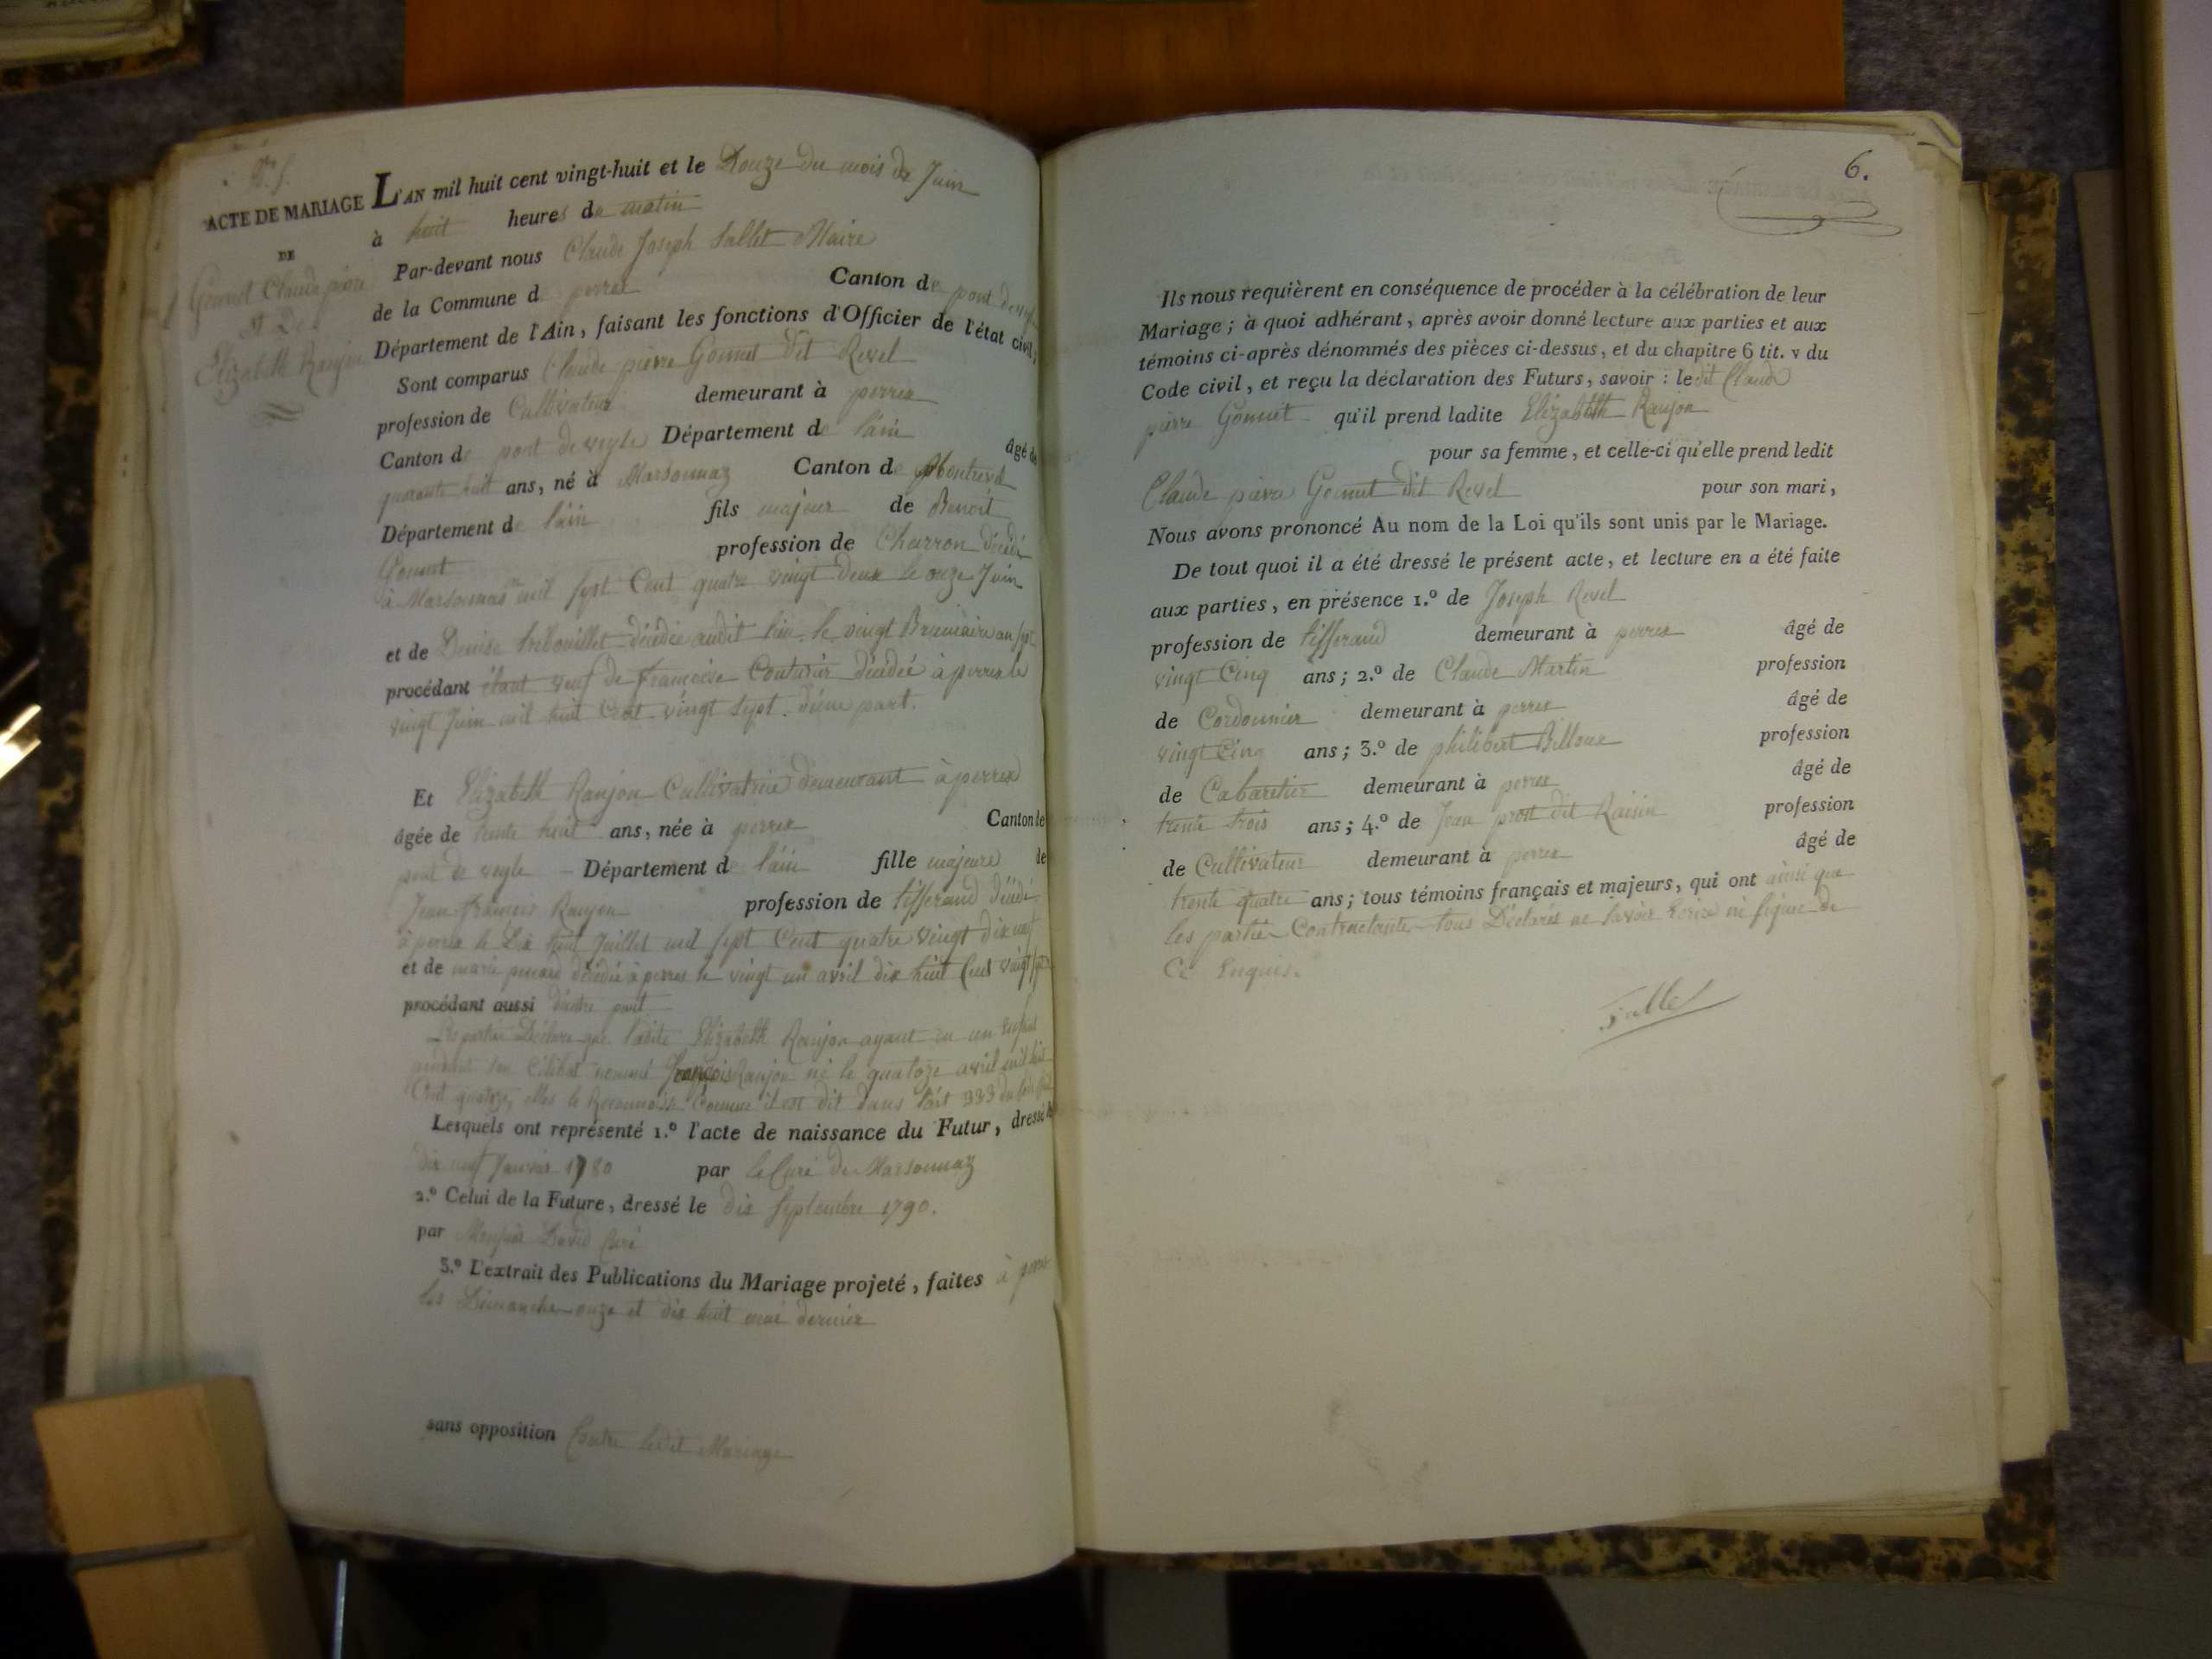 ACTE DE MARIAGE
DE
Gonnet Claude pierre
Elizabeth Ranjon
L'AN mil huit cent vingt-huit et le Douze du mois de Juin
à huit heures du matin
Par-devant nous Claude Joseph Sallet Maire
de la Commune de perrex Canton de pont de veyle
Département de l'Ain, faisant les fonctions d'Officier de l'état civil;
Sont comparus Claude pierre Gonnet dit Revel
profession de Cultivateur demeurant à perrex
Canton de pont de veyle Département de l'ain âgé de
quarante huit ans, né à Marsonnaz Canton de Montrevel
Département de l'ain fils majeur de Benoit
Gonnet profession de Charron décédé
à Marsonnas mil sept Cent quatre vingt deux le onze Juin
et de Denise décédée audit lieu le vingt Brumaire an sept
procédant étant veuf de Françoise Couturier décédée à perrex le
vingt Juin mil huit Cent vingt sept. d'une part.
Et Elizabeth Ranjon Cultivatrice demeurant à perrex
âgée de trente huit ans, née à perrex Canton de
pont de veyle Département de l'ain fille majeure de
Jean François Ranjon profession de tisserand décédé
à perrex le Dix huit Juillet mil sept Cent quatre vingt dix neuf
et de marie décédée à perrex le vingt un avril dix huit Cent vingt sept
procédant aussi d'autre part
Les parties Déclare que ladite Elizabeth Ranjon ayant eu un enfant
pendant son Célibat nommé François Ranjon né le quatoze avril mil huit
Cent quatoze, elles le Reconnaisse Comme il est dit dans l'art 333 du Code Civil
Lesquels ont représenté 1.º l'acte de naissance du Futur, dressé le
dix neuf Janvier 1780 par le Curé de Marsonnaz
2.º Celui de la Future, dressé le dix Septembre 1790.
par David Curé
3.º L'extrait des Publications du Mariage projeté, faites à perrex
les Dimanches onze et dix huit mai dernier
sans opposition Contre ledit Mariage
6.
Ils nous requièrent en conséquence de procéder à la célébration de leur
Mariage; à quoi adhérant, après avoir donné lecture aux parties et aux
témoins ci-après dénommés des pièces ci-dessus, et du chapitre 6 tit. v du
Code civil, et reçu la déclaration des Futurs, savoir : ledit Claude
pierre Gonnet qu'il prend ladite Elizabeth Ranjon
pour sa femme, et celle-ci qu'elle prend ledit
Claude pierre Gonnet dit Revel pour son mari,
Nous avons prononcé Au nom de la Loi qu'ils sont unis par le Mariage.
De tout quoi il a été dressé le présent acte, et lecture en a été faite
aux parties, en présence 1.º de Joseph Revel
profession de tisserand demeurant à perrex âgé de
vingt Cinq ans; 2.º de Claude Martin profession
de Cordonnier demeurant à perrex âgé de
vingt Cinq ans; 3.º de philibert Billoux profession
de Cabaretier demeurant à perrex âgé de
trente trois ans; 4.º de Jean prost dit Raisin profession
de Cultivateur demeurant à perrex âgé de
trente quatre ans; tous témoins français et majeurs, qui ont ainsi que
les parties Contractante tous Déclarés ne savoir Ecrire ni signer de
Ce Enquis.
Sallet